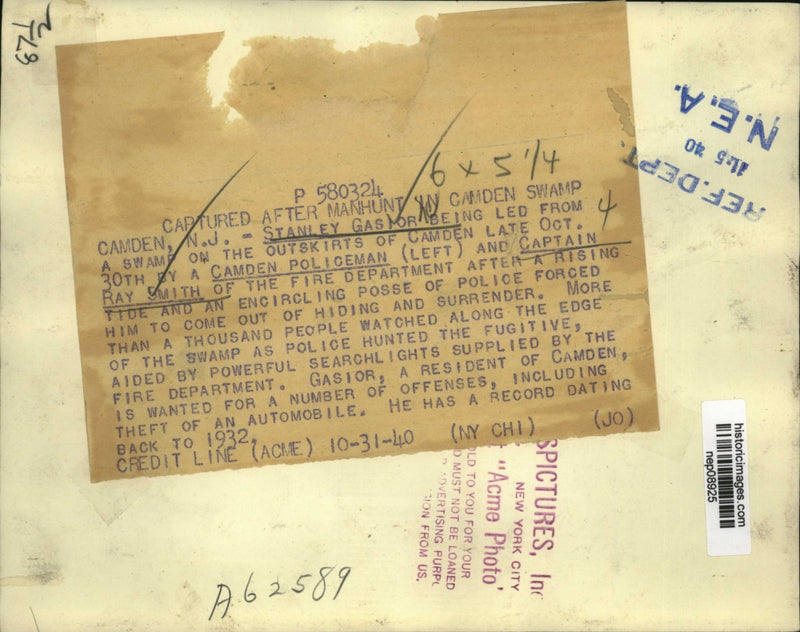 6 x 5 1/4
P 580324
CAPTURED AFTER MANHUNT IN CAMDEN SWAMP
CAMDEN, N.J. - STANLEY GASIOR BEING LED FROM
A SWAMP ON THE OUTSKIRTS OF CAMDEN LATE OCT.
30TH BY A CAMDEN POLICEMAN (LEFT) AND CAPTAIN
RAY SMITH OF THE FIRE DEPARTMENT AFTER A RISING
TIDE AND AN ENCIRCLING POSSE OF POLICE FORCED
HIM TO COME OUT OF HIDING AND SURRENDER. MORE
THAN A THOUSAND PEOPLE WATCHED ALONG THE EDGE
OF THE SWAMP AS POLICE HUNTED THE FUGITIVE,
AIDED BY POWERFUL SEARCHLIGHTS SUPPLIED BY THE
FIRE DEPARTMENT. GASIOR, A RESIDENT OF CAMDEN,
IS WANTED FOR A NUMBER OF OFFENSES, INCLUDING
THEFT OF AN AUTOMOBILE. HE HAS A RECORD DATING
BACK TO 1932.
CREDIT LINE (ACME) 10-31-40 (NY CHI) (JO)
4
REF. DEPT.
40
N.E.A.
historicimages.com
nep08925
SPICTURES, Inc
NEW YORK CITY
"Acme Photo"
OLD TO YOU FOR YOUR
D MUST NOT BE LOANED
ADVERTISING PURP
ION FROM US.
A62589